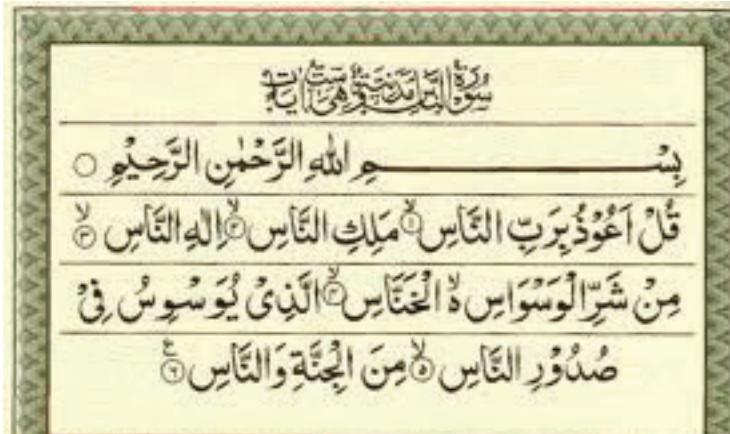 سُوْرَةُ النَّاسِ مَدَنِيَّةٌ وَّهِيَ سِتُّ اٰيَاتٍ
بِسْــــــــــــمِ اللهِ الرَّحْمٰنِ الرَّحِيْمِ ○
قُلْ اَعُوْذُ بِرَبِّ النَّاسِ ۙ﴿۱﴾ مَلِكِ النَّاسِ ۙ﴿۲﴾ اِلٰهِ النَّاسِ ۙ﴿۳﴾
مِنْ شَرِّ الْوَسْوَاسِ ۵ۙ الْخَنَّاسِ ۙ﴿۴﴾ الَّذِیْ یُوَسْوِسُ فِیْ
صُدُوْرِ النَّاسِ ۙ﴿۵﴾ مِنَ الْجِنَّةِ وَ النَّاسِ ﴿۶﴾ ع